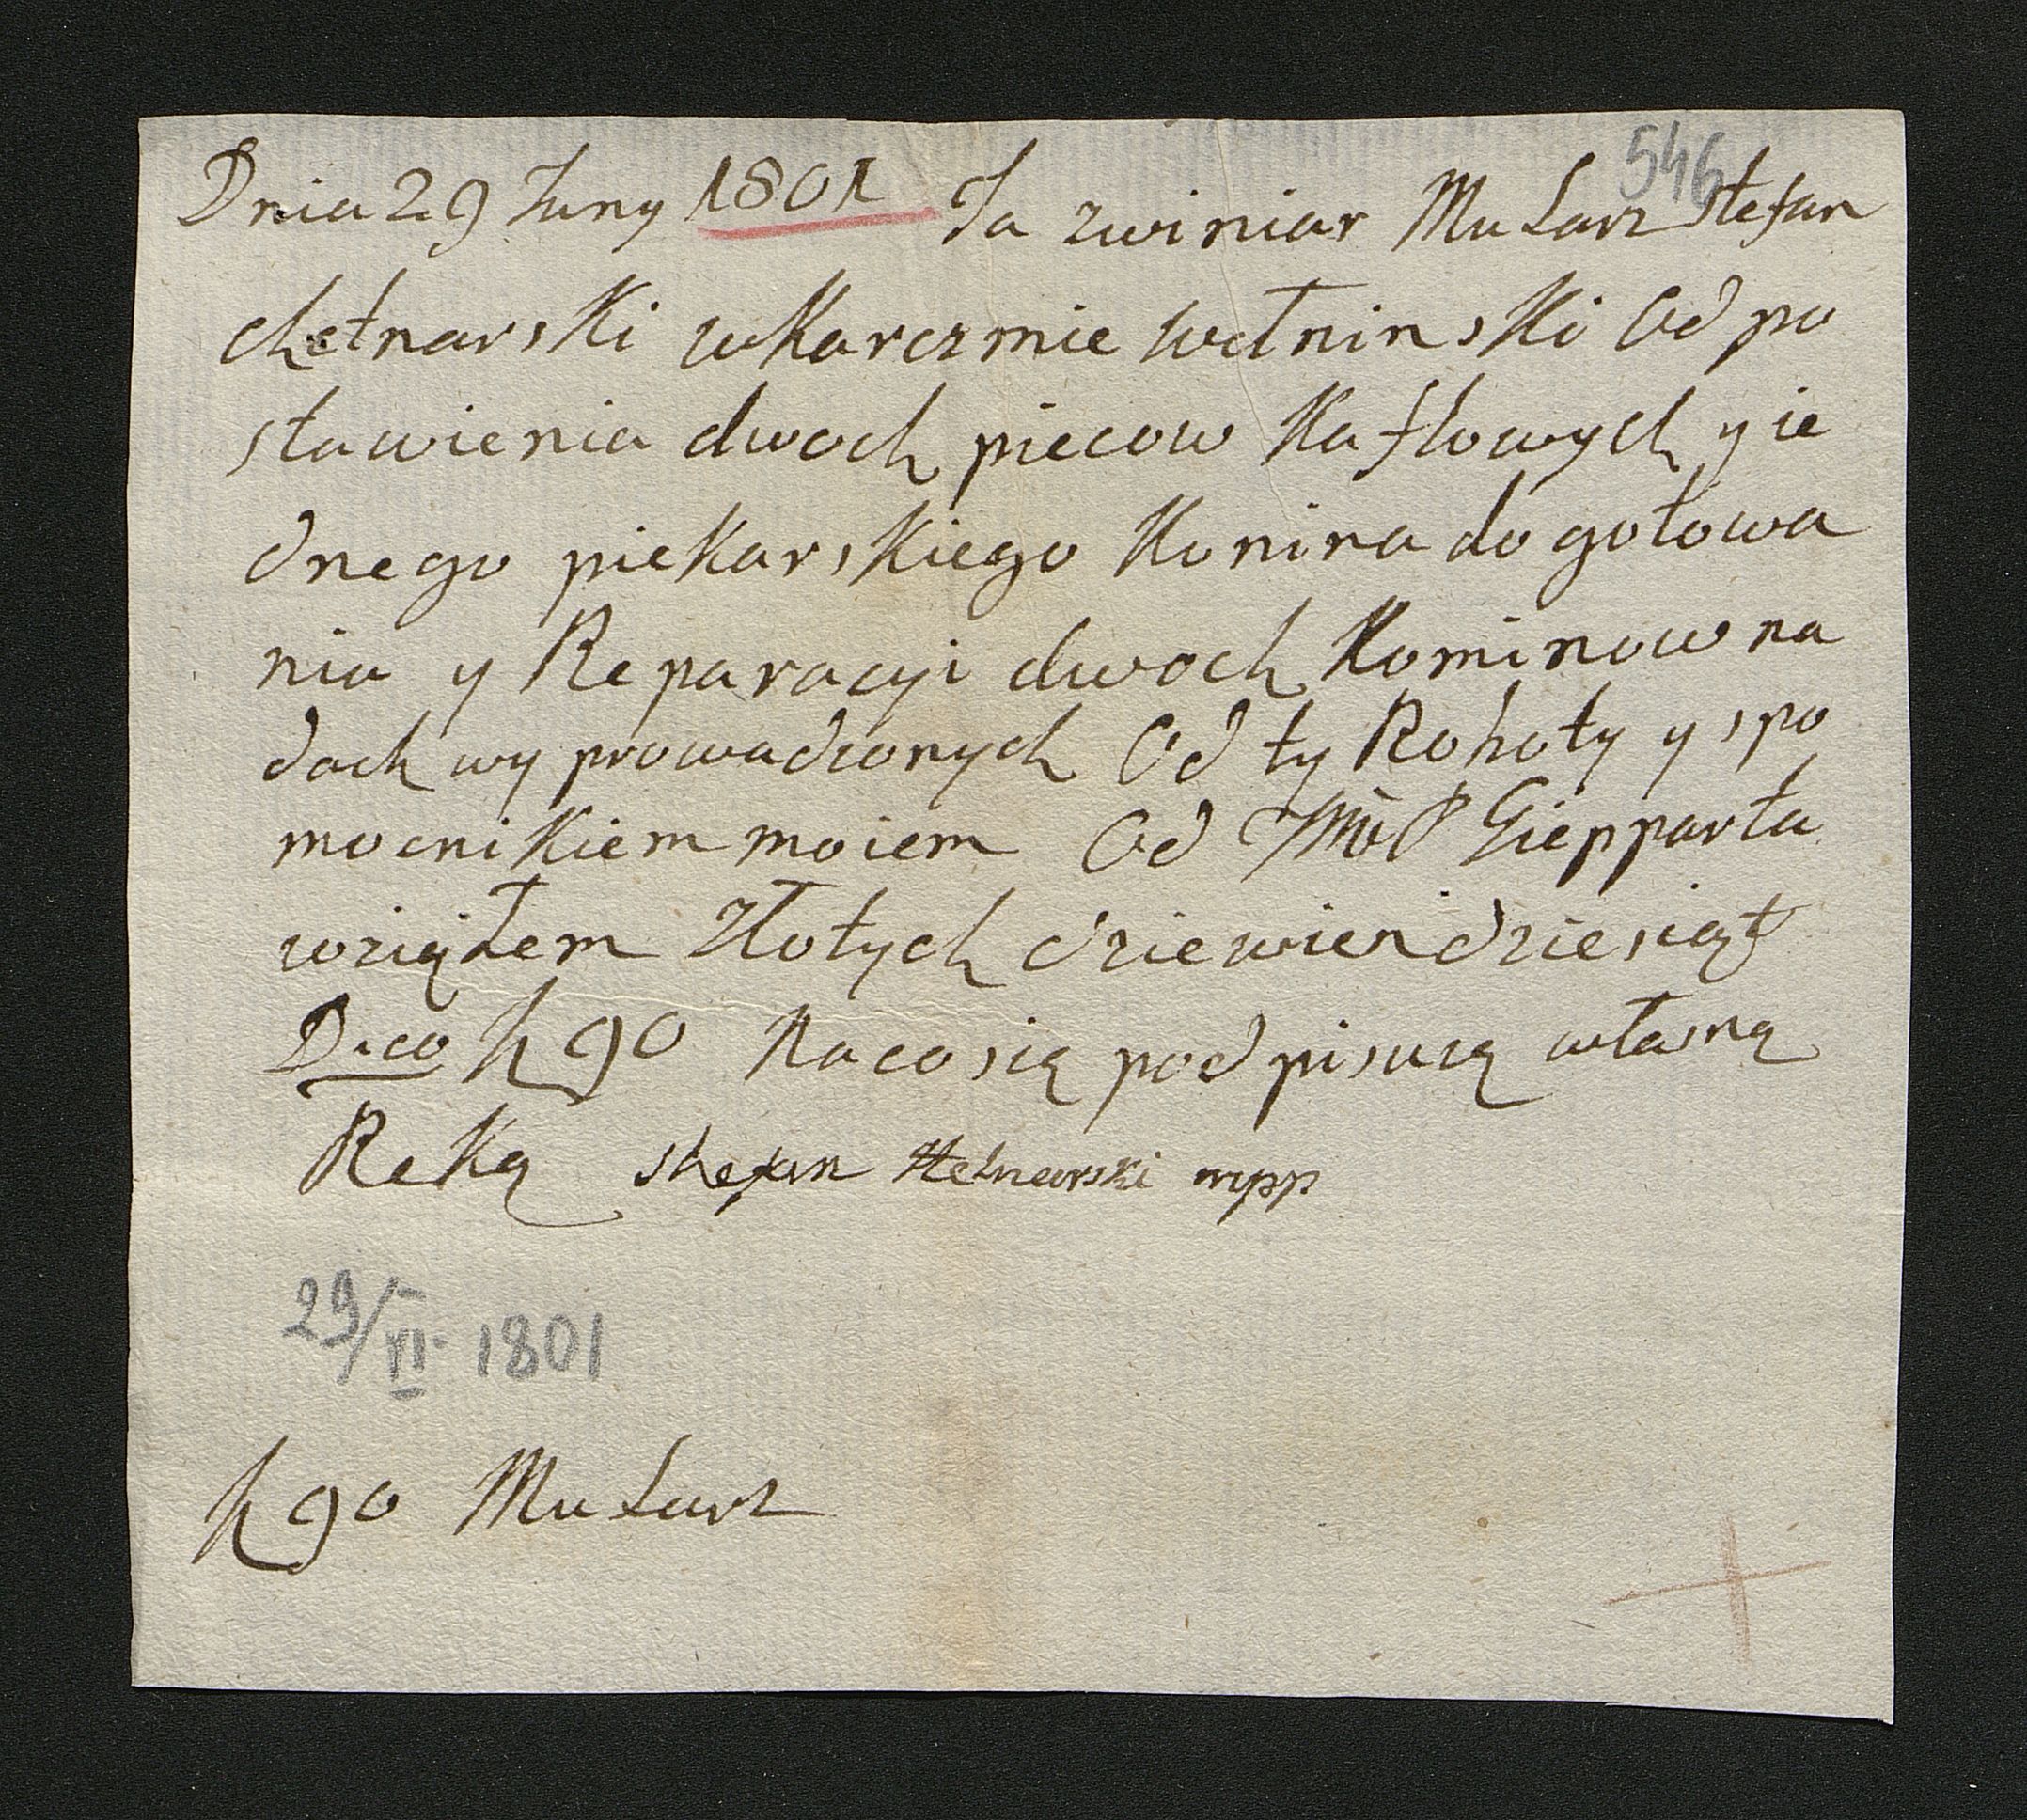 546
Dnia 29 Juny 1801 Ja zwiniar Mularz stefan
chetnarski wKarczmie wetninski Od po
stawienia dwoch piecow Kaflowych y ie
dnego piekarskiego Komina do gotowa
nia y Reparacyi dwoch Kominow na
dach wyprowadzonych Od ty Roboty y spo
mocnikiem moiem Od JMo P Giepparta
wziąłem Złotych dziewiendziesiąt
Dico ƶ 90 Naco sią podpisuią własną
Reką Stefan Hetnarski mpp
29/VI 1801
ƶ 90 Mularz